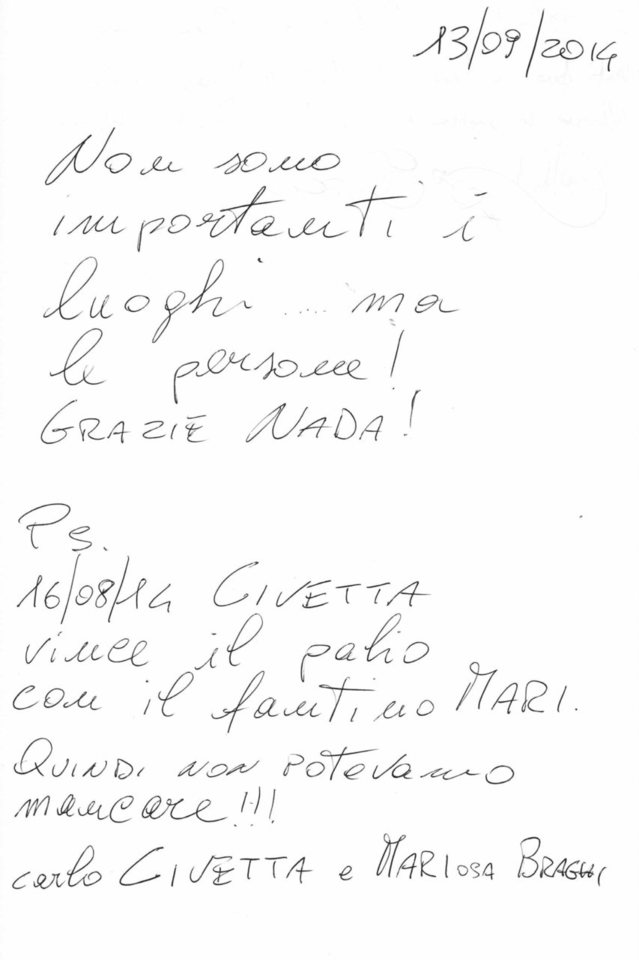 13/09/2014
Non sono
importanti i
luoghi .... ma
le persone!
GRAZIE NADA!
Ps.
16/08/14 CIVETTA
vince il palio
con il fantino MARI.
QUINDI NON POTEVAMO
mancare!!!
carlo CIVETTA e MARIOSA BRAGHI